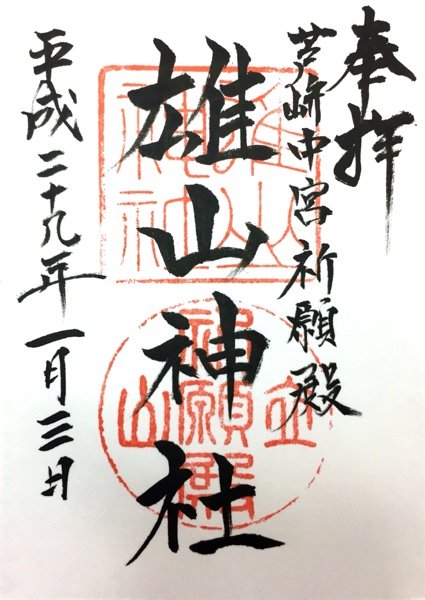 奉拝
芦峅中宮祈願殿
雄山神社
平成二十九年一月三日
雄山神社
立山
祈願殿